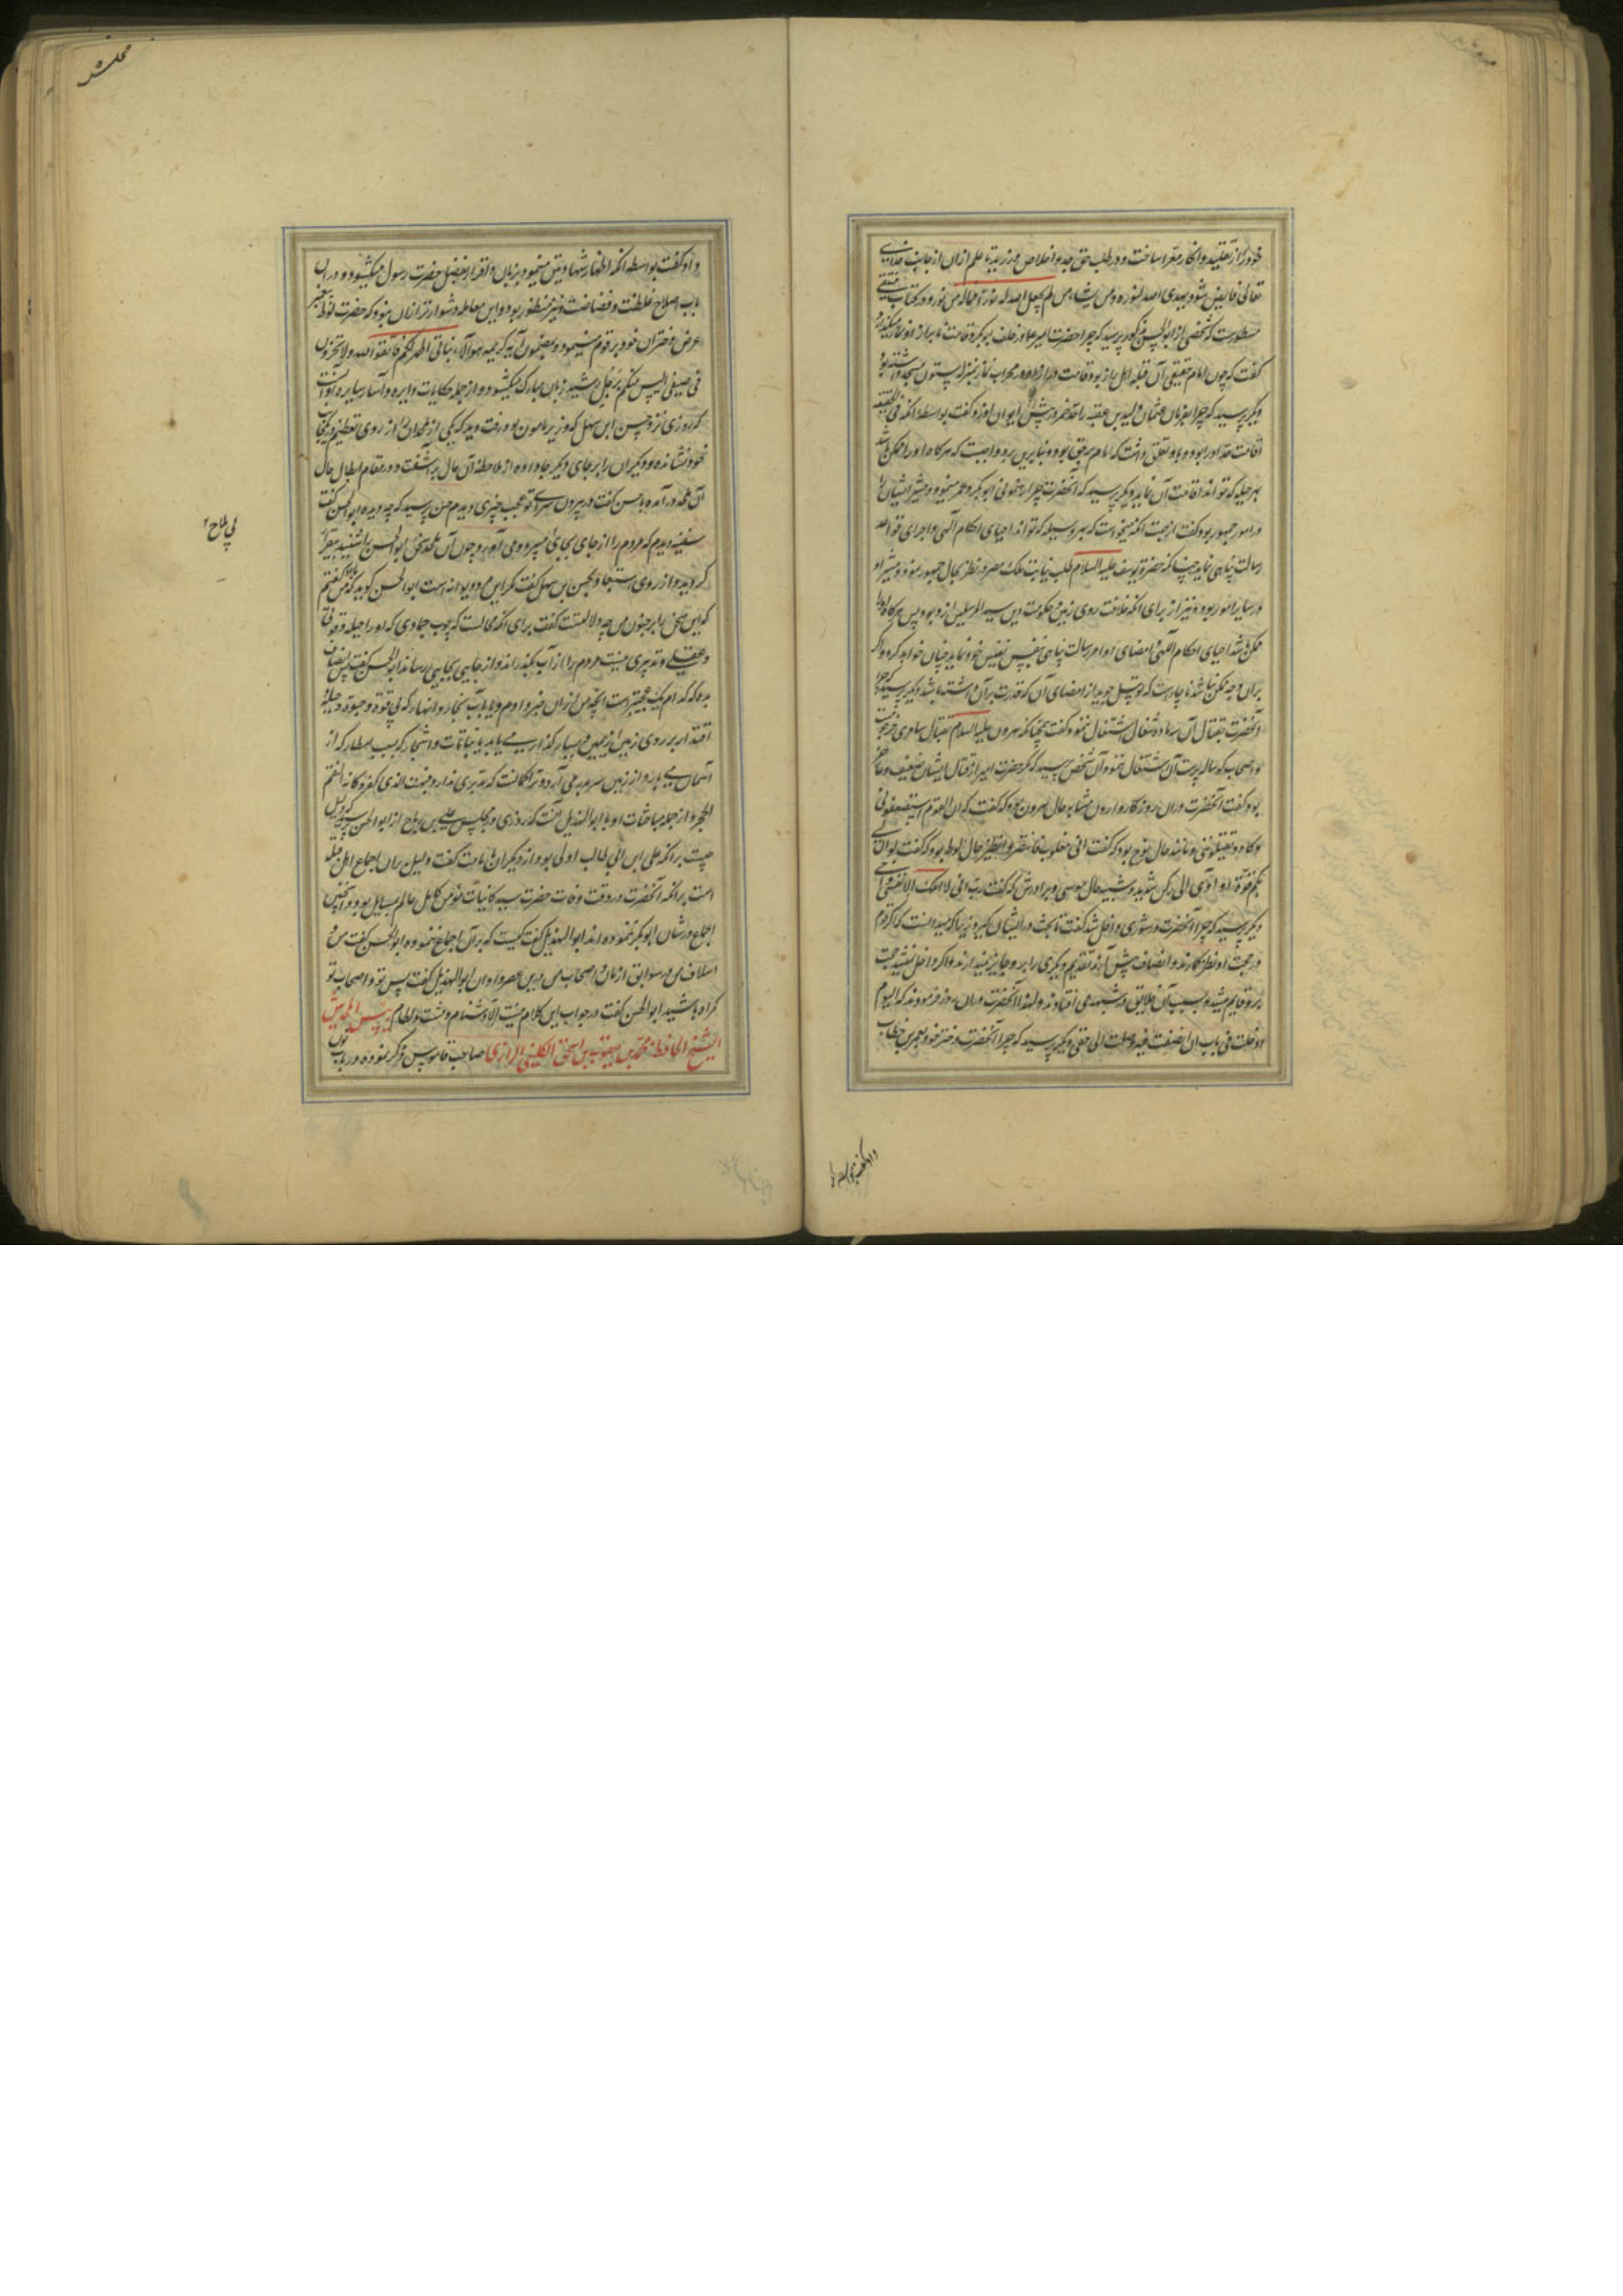 خود را از تقلید و انکار معرا ساخت و در طلب حق جد و اخلاص ورزید تا علم ازان از جانب خدای
تعالی فایض شود یهدی الله لنوره من یشاء و من لم یجعل الله له نورا فما له من نور و در کتاب
مسطورست که شخصی از ابوالحسن مذکور پرسید که چرا حضرت امیر نماز خلف ابوبکر
گفت که چون امام حقیقی آن قبله اهل راز بود قامت در محراب نماز بمنزله ستون مسجد داشته بود
دیگر پرسید که چرا بفرمان عثمان ولید بن عقبه را حد خمر در پیش ایوان او زد گفت بواسطه آنکه فی الحقیقه
اقامت حد او را بود و باو تعلق داشت که امام برحق بود و بنابرین برو واجبست که هرگاه او را ممکن باشد
بهر حیله که تواند اقامت آن نماید دیگر پرسید که آنحضرت چرا رهنمونی ابوبکر و عمر مینمود و مشیر ایشان
در امور جمهور بود گفت از جهت آنکه میخواست که بهر وسیله که تواند احیای احکام الهی و اجرای قواعد
رسالت پناهی نماید چنانکه حضرة یوسف علیه السلام طلب نیابت ملک مصر و نظر بحال جمهور نمود و مشیر او
در سایر امور بود و نیز از برای آنکه خلافت روی زمین و حکومت دین سید المرسلین ازو بود پس هرگاه او را
ممکن شد احیای احکام الهی و امضای اوامر رسالت پناهی بنفس نفیس خود نماید چنان خواهد کرد و اگر
بران وجه ممکن نباشد ناچارست که توسل جوید از امضای آن که قدرت بر آن داشته باشد دیگر پرسید که چرا
آنحضرت بقتال آن اشتغال ننمود گفت همچنانکه هرون علیه السلام بقتال سامری
و اصحاب گوساله پرست آن اشتغال ننمود آن شخص پرسید که مگر حضرت امیر از قتال ایشان ضعیف و عاجز
بود گفت آنحضرت دران روزگار در مشابه حال هرون بود که گفت که ان القوم استضعفونی
و کادوا یقتلوننی و مانند حال نوح بود که گفت انی مغلوب فانتصر و نظیر حال لوط بود که گفت لو ان لی
بکم قوة او آوی الی رکن شدید و شبیه حال موسی و برادرش که گفت رب انی لا املک الا نفسی و اخی
دیگر پرسید که چرا آنحضرت در شوری داخل شد گفت تا بحث در ایشان گیرد زیرا که میدانست که اگر قوم
در حجت او نظر گمارند و انصاف پیش آرند تقدیم دیگری را برو جایز نمیدارند و اگر داخل نمیشد حجت
برو قایم میشد و بسبب آن خلایق در شبهه می افتادند و لهذا آنحضرت دران روز فرمودند که الیوم
ادخلت فی باب ان انصفت فیه وصلت الی حقی دیگر پرسید که چرا آنحضرت دختر خود بعمر بن خطاب
داد گفت بواسطه
و او گفت بواسطه آنکه اظهار شهادتین مینمود بزبان و اقرار بفضل حضرت رسول میگشود و در ان
باب اصلاح غلظت و فضاضت او نیز منظور بود و این معامله دشوارتر ازان نبود که حضرت لوط پیغمبر
عرض دختران خود بر قوم مینمود و بمضمون آیه کریمه هؤلاء بناتی اطهر لکم فاتقوا الله و لا تخزون
فی ضیفی الیس منکم رجل رشید زبان مبارک میگشود و از جمله حکایات دایره و آثار سایره او آنست
که روزی نزد حسن ابن سهل که وزیر مامون بود رفت دید که یکی از ملحدان را از روی تعظیم در جانب
خود نشانده و دیگران را بر جای دیگر جا داده از ملاحظه آن حال برآشفت و در مقام ابطال حال
آن ملحد در آمده با حسن گفت در بیرون سرای تو عجب چیزی دیدم حسن پرسید که چه دیده ابوالحسن گفت
سفینه دیدم که مردم را از جای بجائی میبرد و می آورد چون آن ملحد سخن ابوالحسن را شنید
گردید و از روی استبعاد بحسن بن سهل گفت مگر این مرد دیوانه است ابوالحسن گوید که من گفتم
که این سخن را بر جنون من چه دلالتست گفت برای آنکه محالست که چوب جمادی که او را حیله و قوتی
و عقلی و تدبیری نیست مردم را از آب بگذراند و از جایی بجایی رساند ابوالحسن گفت پس انصاف
بده که کدام یک عجیبترست آنچه من ازان خبر دادم و یا آب بحار و انهار که بی قوة و حیوة و حیله و
اقتدار بر روی زمین از یمین و یسار گذار می یابد یا نباتات و اشجار که بسبب امطار که از
آسمان می بارد از زمین سر بر می آرد و ترا گمانست که مدبری ندارد فبهت الذی کفر و کانه القم
الحجر و از جمله مباحثات او با ابوالهذیل آنست که روزی در مجلس علی بن رباح از ابوالحسن پرسید که دلیل
چیست برآنکه علی ابن ابی طالب اولی بود از دیگران بامامت گفت دلیل بران اجماع اهل قبله
است برآنکه آنحضرت در وقت وفات حضرت سید کائنات مؤمن کامل عالم بمسایل بود و آنچنین
اجماع در شان ابوبکر ننموده اند ابوالهذیل گفت کیست که بر آن اجماع ننموده ابوالحسن گفت من و
اسلاف من در سوابق ازمان و اصحاب من درین عصر و اوان ابوالهذیل گفت پس تو و اصحاب تو
گمراه باشید ابوالحسن گفت در جواب این کلام نیست الا دشنام و مشت و لطام رئیس المحدثین
الشیخ الحافظ محمد بن یعقوب بن اسحق الکلینی الرازی صاحب قاموس ذکر نموده در باب نون